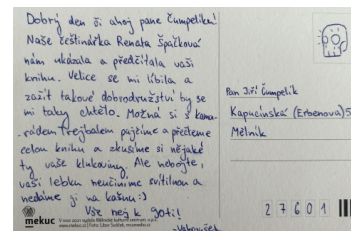 Dobrý den či ahoj pane Čumpelíku!
Naše češtinářka Renata Špačková
nám ukázala a předčítala vaši
knihu. Velice se mi líbila a
zažít takové dobrodružství by se
mi taky chtělo. Možná si s kama-
rádem Trejbalem pajčíme a přečteme
celou knihu a zkusíme si nějaké
ty vaše klukoviny. Ale nebojte,
vaši lebku neučiníme svítilnou a
nedáme ji na kašnu :)
Vše nej k 90ti!
Pan Jiří Čumpelík
Kapucínská (Erbenova) 5
Mělník
2 7 6 0 1
mekuc